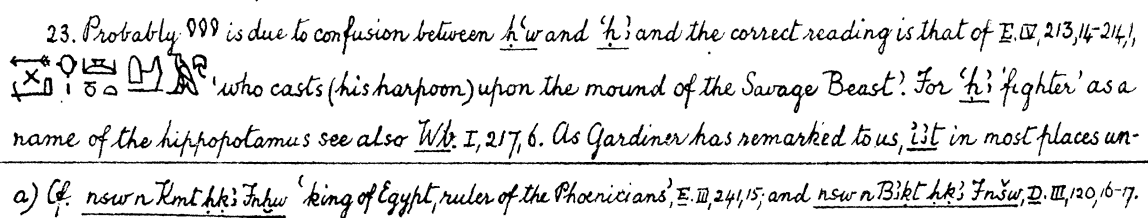 23. Probably 𓄹𓄹𓄹 is due to confusion between ḥ‘w and ‘ḥꜣ and the correct reading is that of E. IV, 213, 14-214, 1,
'who casts (his harpoon) upon the mound of the Savage Beast'. For ‘ḥꜣ 'fighter' as a
name of the hippopotamus see also Wb. I, 217, 6. As Gardiner has remarked to us, ꜣt in most places un-
a) Cf. nsw n Kmt ḥḳꜣ Fnḫw 'king of Egypt, ruler of the Phoenicians', E. III, 241, 15; and nsw n Bꜣkt ḥḳꜣ Fnšw, D. III, 120, 16-17.